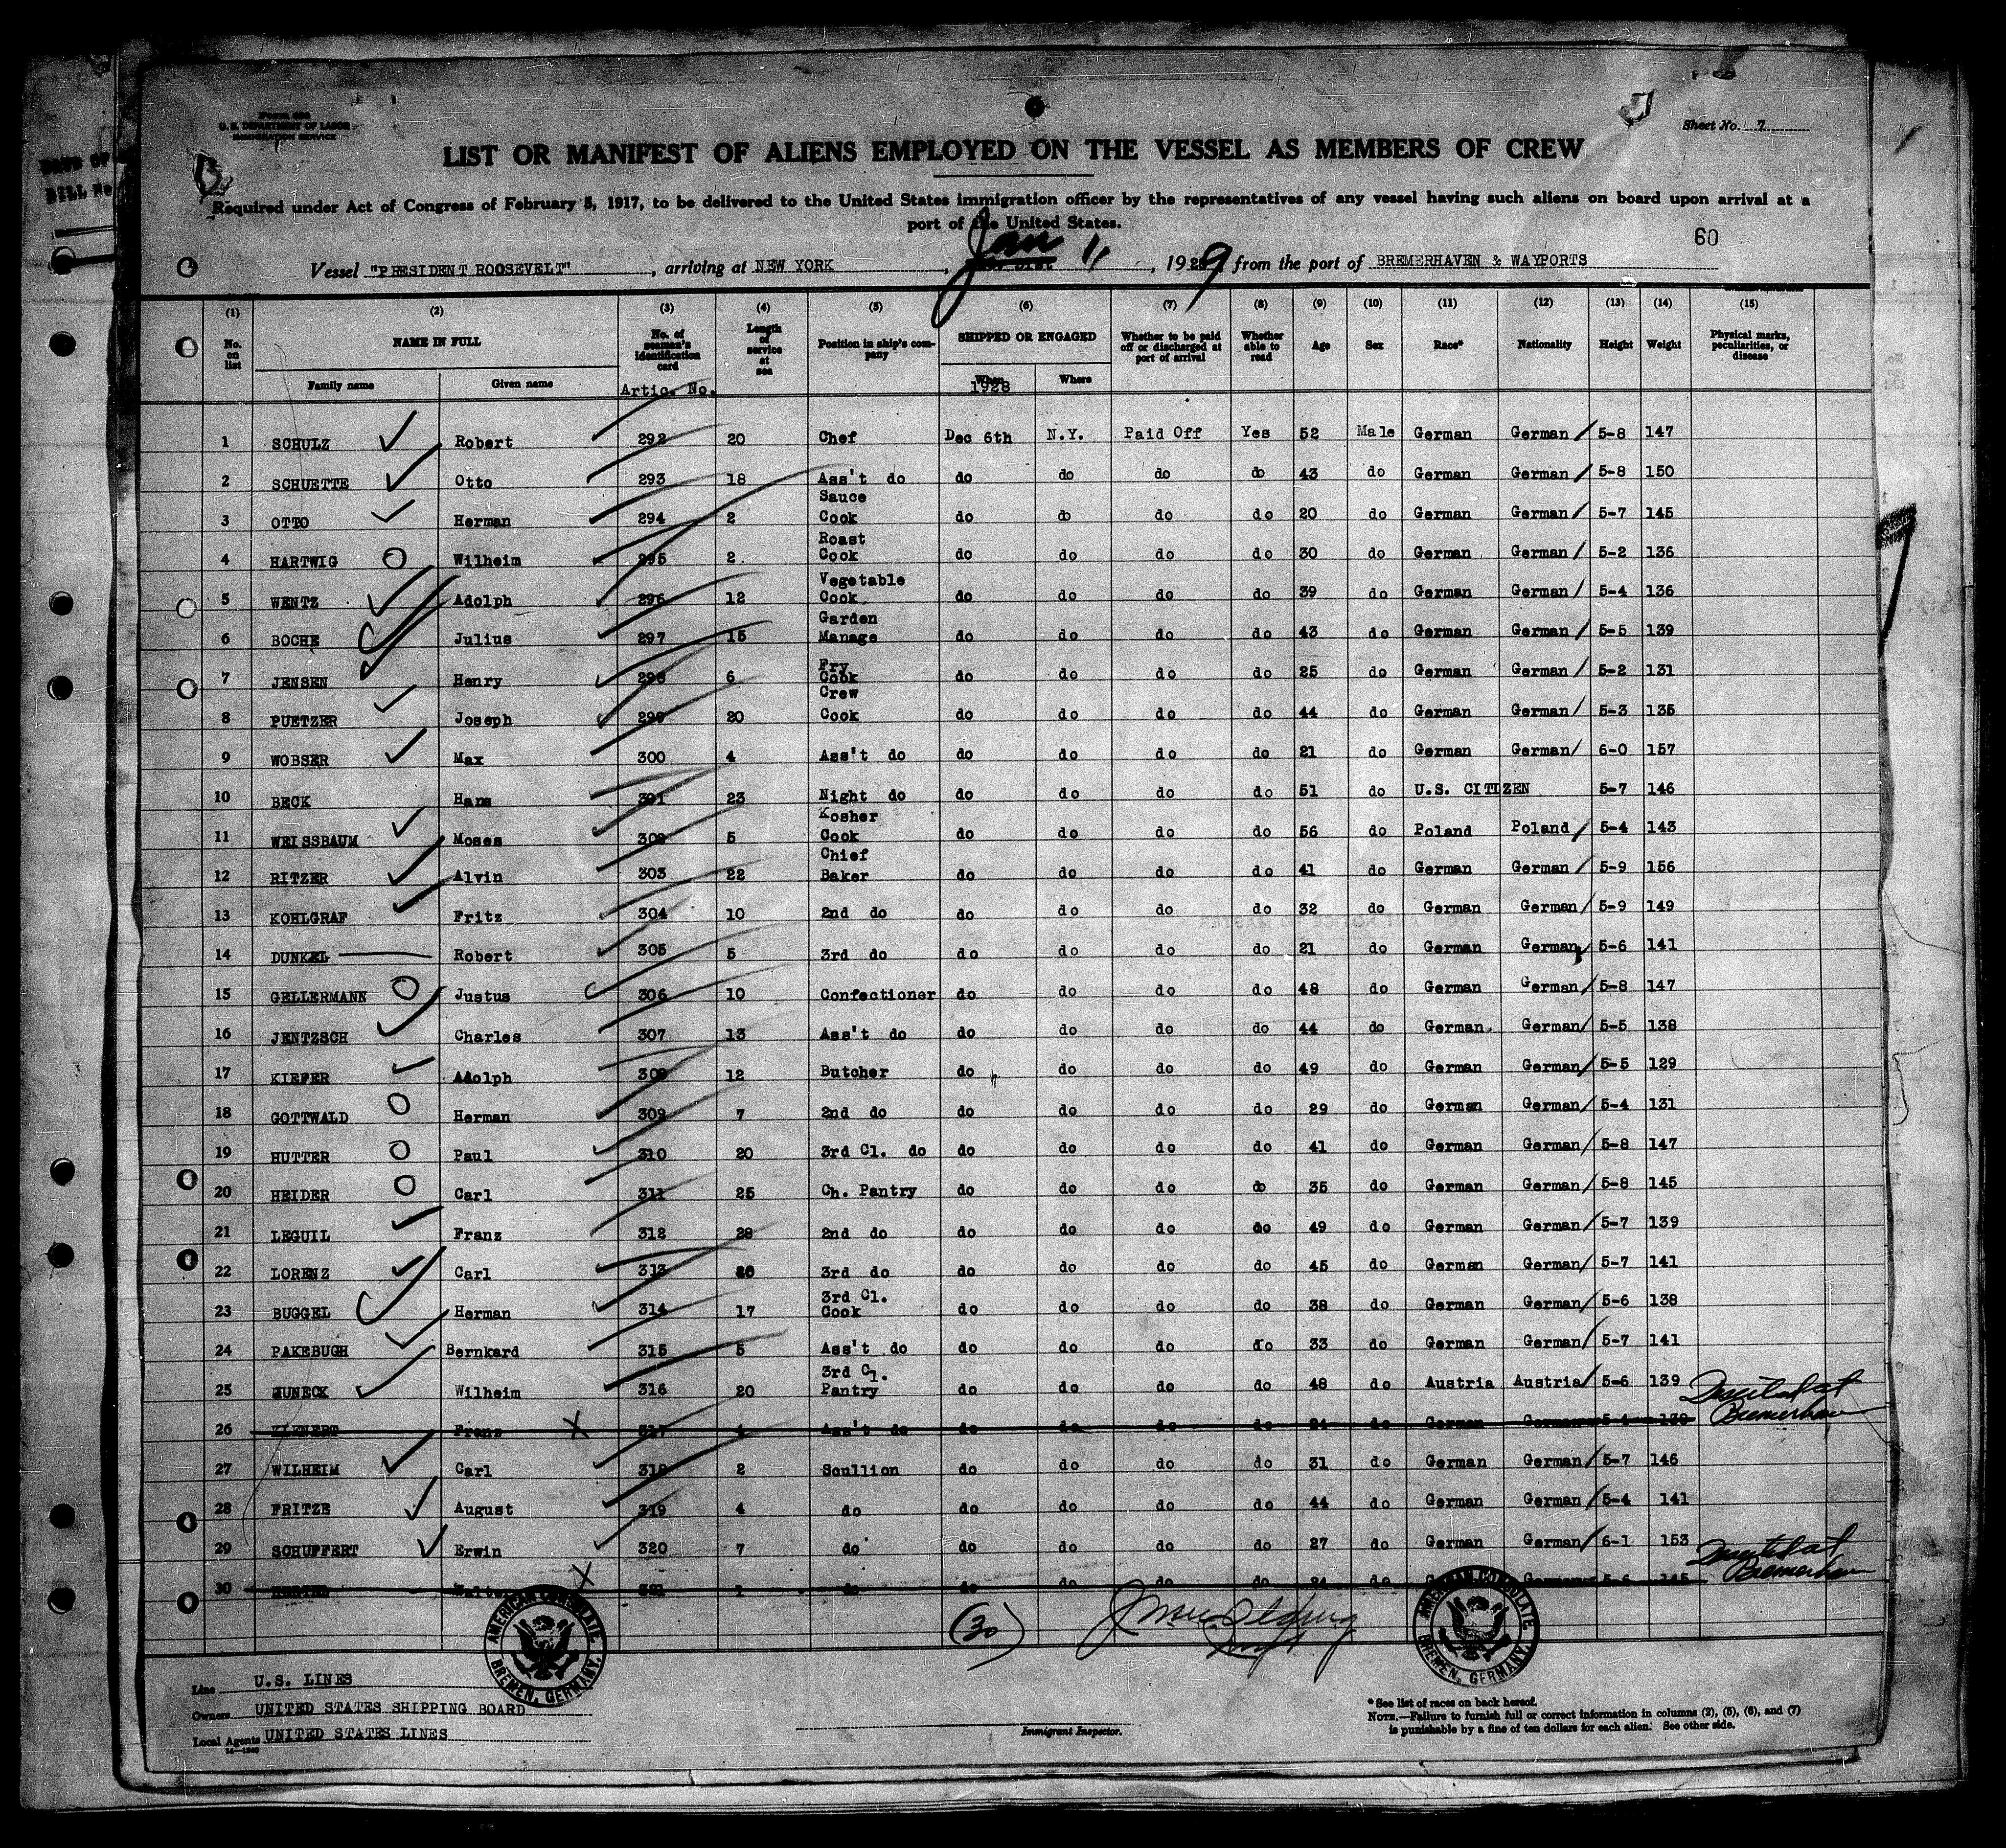 DATE OF
BILL No
U. S. DEPARTMENT OF LABOR
IMMIGRATION SERVICE
Sheet No. 7
LIST OR MANIFEST OF ALIENS EMPLOYED ON THE VESSEL AS MEMBERS OF CREW
Required under Act of Congress of February 5, 1917, to be delivered to the United States immigration officer by the representatives of any vessel having such aliens on board upon arrival at a
port of the United States.
60
Vessel "PRESIDENT ROOSEVELT", arriving at NEW YORK, Jan 11, 1929 from the port of BREMERHAVEN & WAYPORTS
(1) (2) (3) (4) (5) (6) (7) (8) (9) (10) (11) (12) (13) (14) (15)
No. on list NAME IN FULL No. of seaman's identification card Length of service at sea Position in ship's company SHIPPED OR ENGAGED Whether to be paid off or discharged at port of arrival Whether able to read Age Sex Race* Nationality Height Weight Physical marks, peculiarities, or disease
Family name Given name Artic. No. When 1928 Where
1 SCHULZ Robert 292 20 Chef Dec 6th N.Y. Paid Off Yes 52 Male German German 5-8 147
2 SCHUETTE Otto 293 18 Ass't do do do do do 43 do German German 5-8 150
3 OTTO Herman 294 2 Sauce Cook do do do do 20 do German German 5-7 145
4 HARTWIG Wilheim 295 2 Roast Cook do do do do 30 do German German 5-2 136
5 WENTZ Adolph 296 12 Vegetable Cook do do do do 39 do German German 5-4 136
6 BOCHE Julius 297 15 Garden Manage do do do do 43 do German German 5-5 139
7 JENSEN Henry 298 6 Fry Cook do do do do 25 do German German 5-2 131
8 PUETZER Joseph 299 20 Crew Cook do do do do 44 do German German 5-3 135
9 WOBSER Max 300 4 Ass't do do do do do 21 do German German 6-0 157
10 BECK Hans 301 23 Night do do do do do 51 do U.S. CITIZEN 5-7 146
11 WEISSBAUM Moses 302 5 Kosher Cook do do do do 56 do Poland Poland 5-4 143
12 RITZER Alvin 303 22 Chief Baker do do do do 41 do German German 5-9 156
13 KOHLGRAF Fritz 304 10 2nd do do do do do 32 do German German 5-9 149
14 DUNKEL Robert 305 5 3rd do do do do do 21 do German German 5-6 141
15 GELLERMANN Justus 306 10 Confectioner do do do do 48 do German German 5-8 147
16 JENTZSCH Charles 307 13 Ass't do do do do do 44 do German German 5-5 138
17 KIEFER Adolph 308 12 Butcher do do do do 49 do German German 5-5 129
18 GOTTWALD Herman 309 7 2nd do do do do do 29 do German German 5-4 131
19 HUTTER Paul 310 20 3rd Cl. do do do do do 41 do German German 5-8 147
20 HEIDER Carl 311 25 Ch. Pantry do do do do 35 do German German 5-8 145
21 LEGUIL Franz 312 28 2nd do do do do do 49 do German German 5-7 139
22 LORENZ Carl 313 3rd do do do do do 45 do German German 5-7 141
23 BUGGEL Herman 314 17 3rd Cl. Cook do do do do 38 do German German 5-6 138
24 PAKEBUGH Bernkard 315 5 Ass't do do do do do 33 do German German 5-7 141
25 JUNECK Wilheim 316 20 3rd Cl. Pantry do do do do 48 do Austria Austria 5-6 139
26 KIENERT Franz X 317 4 Ass't do do do do do 24 do German German 5-4 Bremerhaven
27 WILHEIM Carl 318 2 Scullion do do do do 31 do German German 5-7 146
28 FRITZE August 319 4 do do do do do 44 do German German 5-4 141
29 SCHUFFERT Erwin 320 7 do do do do do 27 do German German 6-1 153
30 Walter X 321 1 do do do do do 24 do German 5-6 145 Bremerhaven
(30)
AMERICAN CONSULATE BREMEN, GERMANY.
AMERICAN CONSULATE BREMEN, GERMANY.
Line U.S. LINES
Owners UNITED STATES SHIPPING BOARD
Local Agents UNITED STATES LINES
Immigrant Inspector.
* See list of races on back hereof.
NOTE.—Failure to furnish full or correct information in columns (2), (5), (6), and (7)
is punishable by a fine of ten dollars for each alien. See other side.